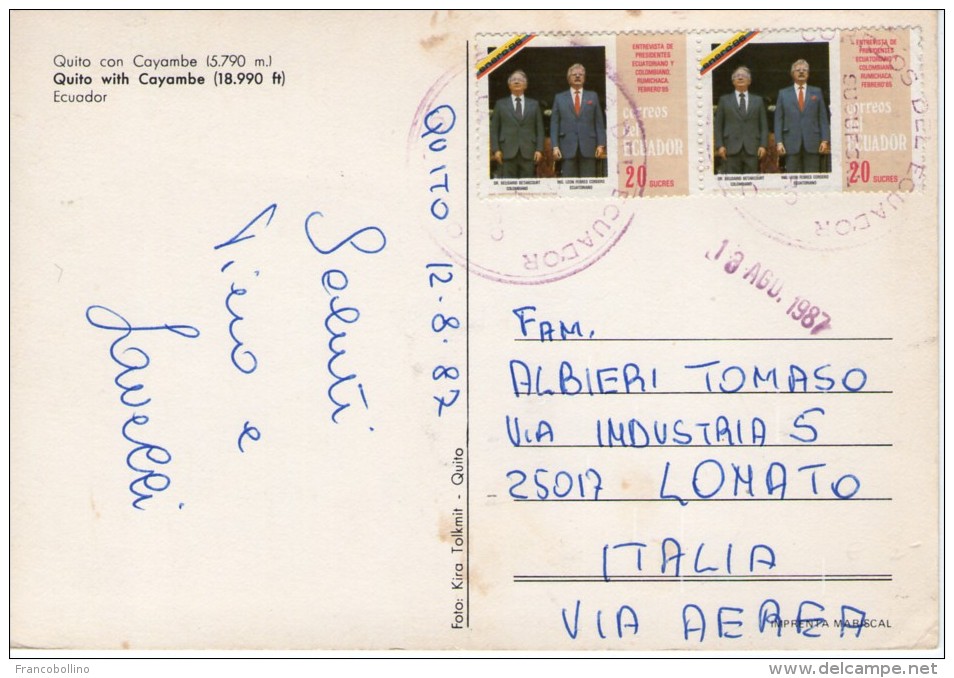 Quito con Cayambe (5.790 m.)
Quito with Cayambe (18.990 ft)
Ecuador
QUITO 12.8.87
Saluti
Piero e
Foto: Kira Tolkmit - Quito
ENTREVISTA DE
PRESIDENTES
ECUATORIANO Y
COLOMBIANO,
RUMICHACA,
FEBRERO'85
correos
del
ECUADOR
20 SUCRES
DR. BELISARIO BETANCOURT
COLOMBIANO
ING. LEON FEBRES CORDERO
ECUATORIANO
ENTREVISTA DE
PRESIDENTES
ECUATORIANO Y
COLOMBIANO,
RUMICHACA,
FEBRERO'85
correos
ECUADOR
20 SUCRES
DR. BELISARIO BETANCOURT
COLOMBIANO
ING. LEON FEBRES CORDERO
ECUATORIANO
ECUADOR
DEL ECUADOR
AGO. 1987
FAM.
ALBIERI TOMASO
VIA INDUSTRIA 5
25017 LONATO
ITALIA
VIA AEREA
IMPRENTA MARISCAL
Francobollino
www.delcampe.net